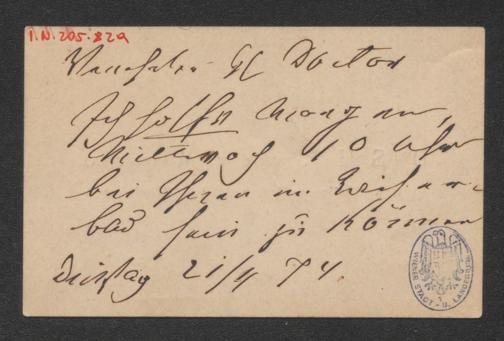 I.N. 205.829
Verehrter H Doctor
Ich hoffe Morgen,
Mittwoch 10 Uhr
bei Ihnen im
bad sein zu können
Dienstag 21/4 74.
WIENER STADT- U. LANDESBIBL.